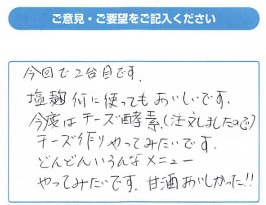 ご意見・ご要望をご記入ください
今回で2台目です。
塩麹何に使ってもおいしいです。
今度はチーズ酵素(注文しましたので)
チーズ作りやってみたいです。
どんどんいろんなメニュー
やってみたいです。甘酒おいしかった!!